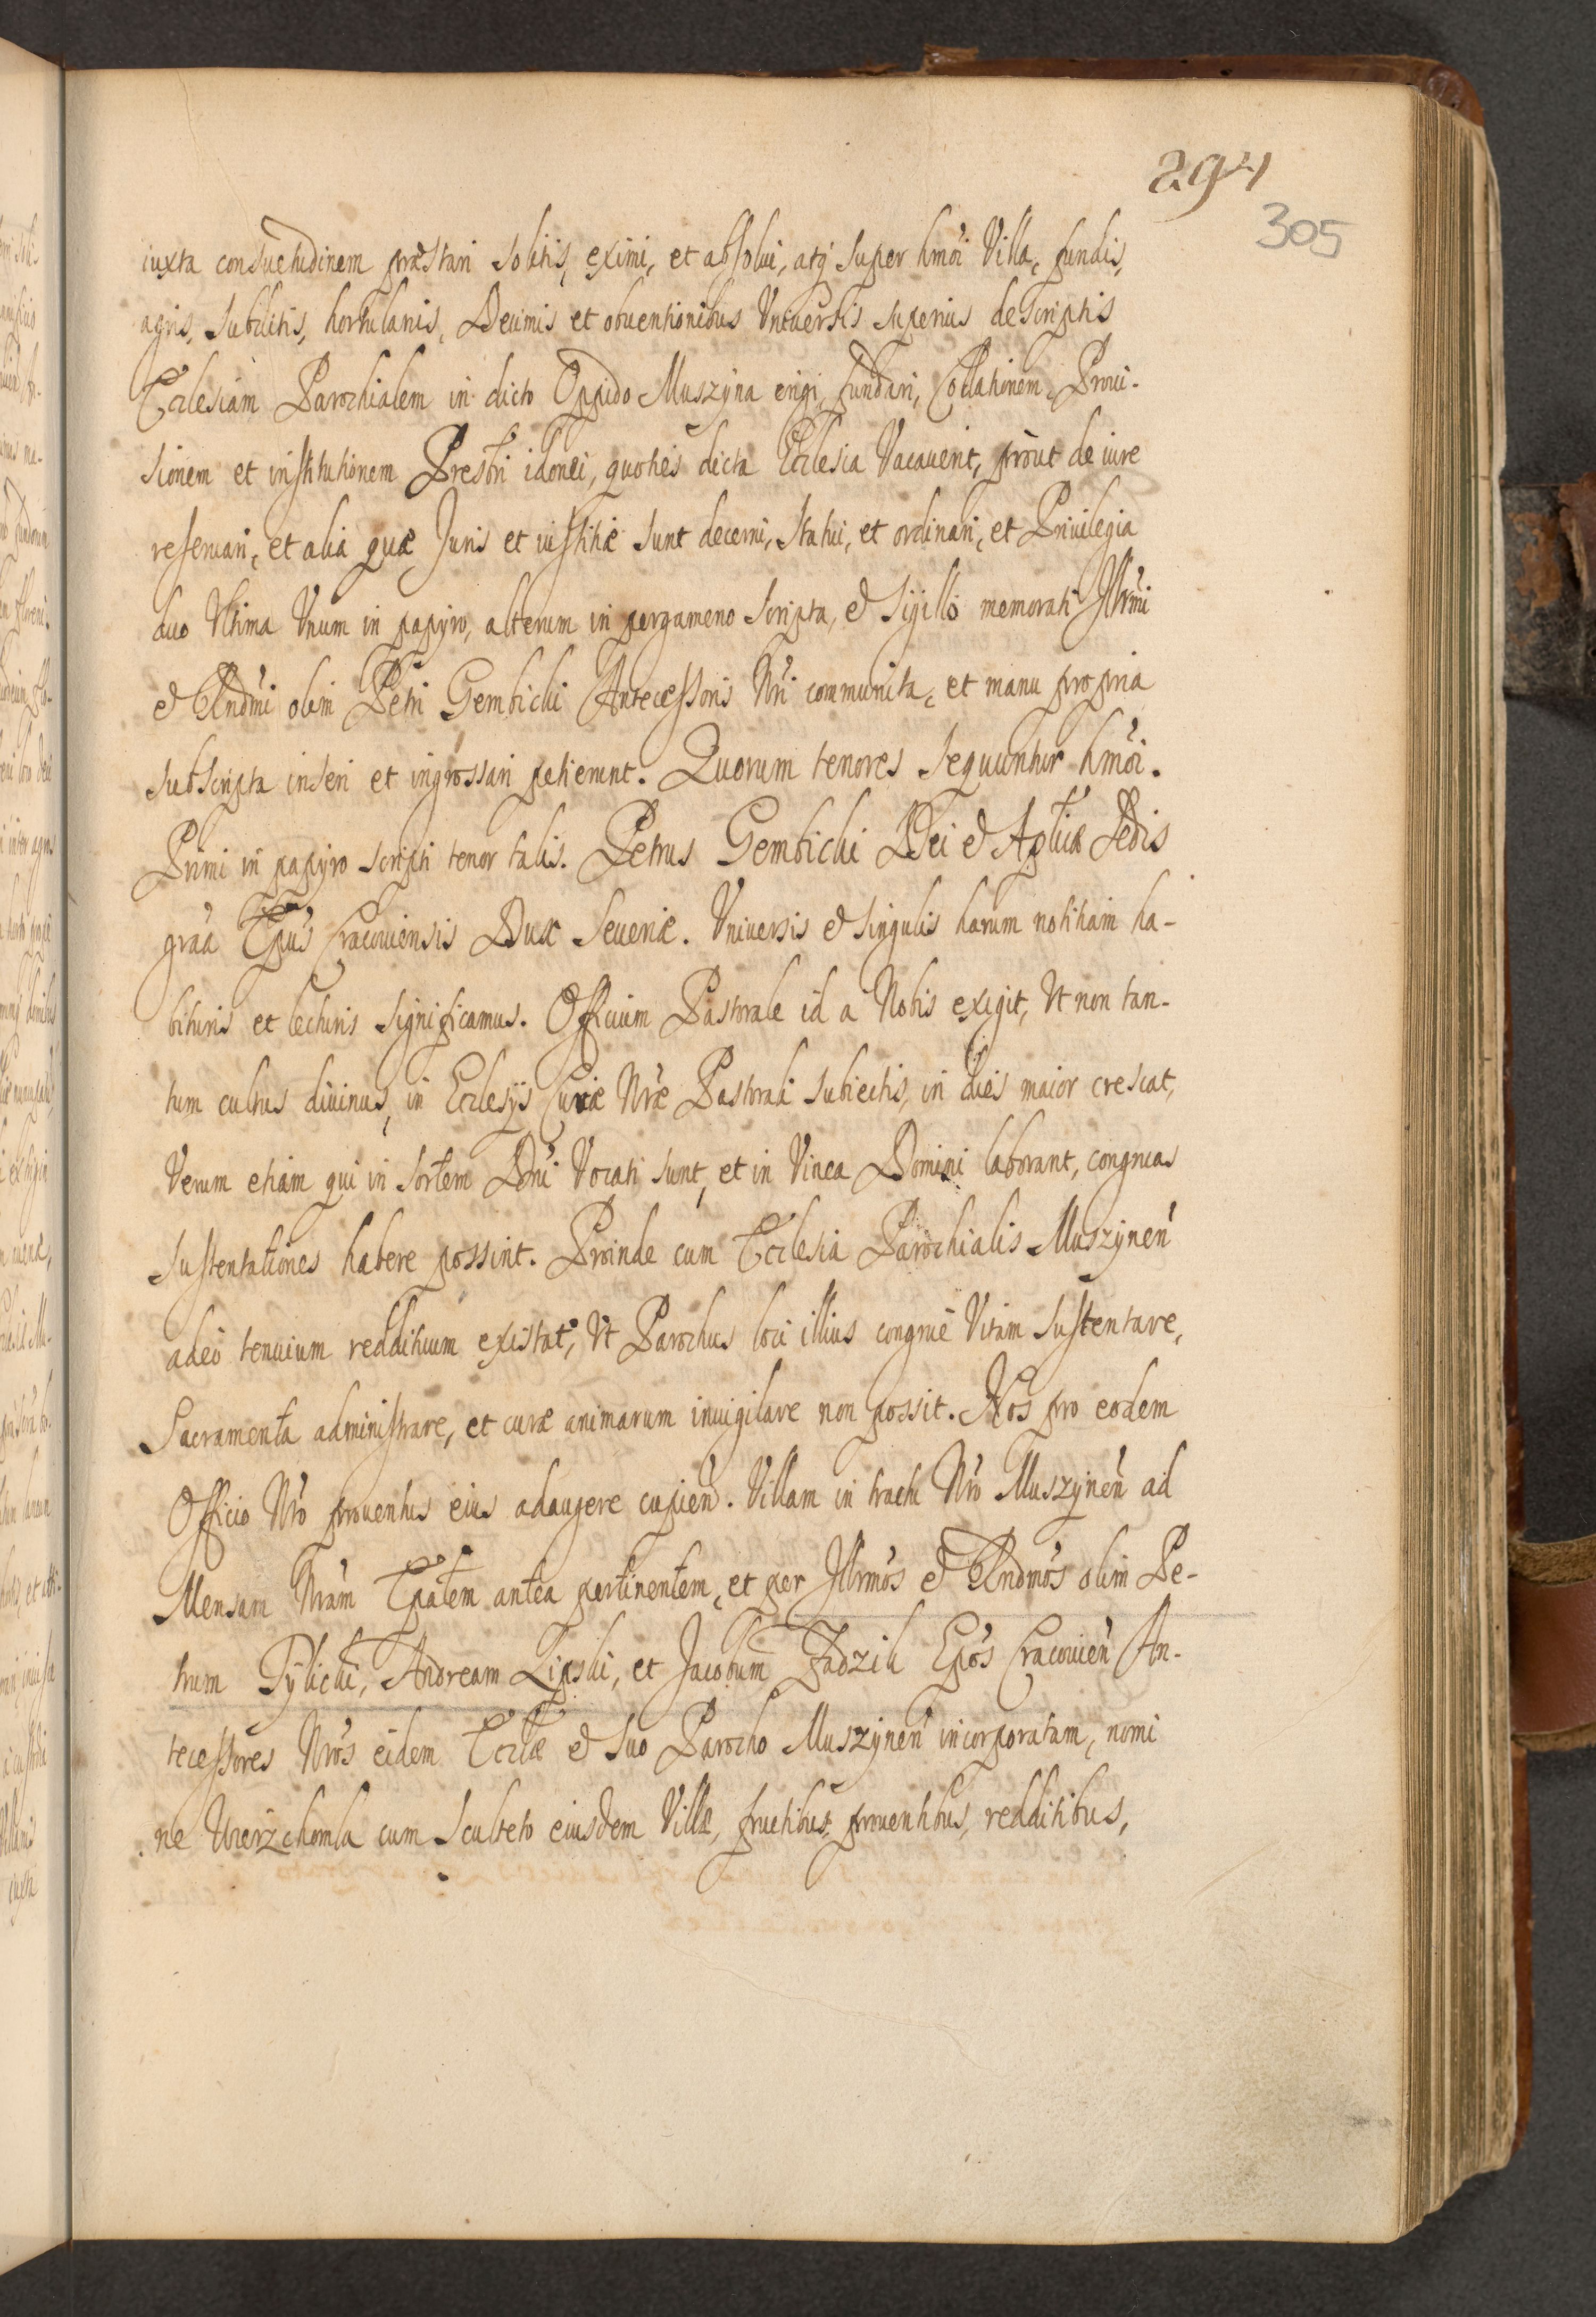 294
305
iuxta consuetudinem præstari solitis, eximi, et absolui, atq; super hmõi Villa, fundis,
agris, subditis, hortulanis, Decimis et obuentionibus Vniuersis superius descriptis
Ecclesiam Parochialem in dicto Oppido Muszyna erigi, fundari, Collationem, Proui-
sionem et institutionem Presbri idonei, quoties dicta Ecclesia Vacauerit, prout de iure
reseruari, et alia quæ Juris et iustitiæ sunt decerni, statui, et ordinari, et Priuilegia
duo Vltima Vnum in papyro, alterum in pergameno scripta, et sigillo memorati Illrmi
et Rndmi olim Petri Gembicki Antecessoris Nri communita, et manu propria
subscripta inseri et ingrossari petierunt. Quorum tenores sequuntur hmõi.
Primi in papyro scripti tenor talis. Petrus Gembicki Dei et Aplicæ Sedis
graã Epus Cracouiensis Dux Seueriæ. Vniuersis et singulis harum notitiam ha-
bituris et lecturis significamus. Officium Pastorale id a Nobis exigit, Vt non tan-
tum cultus diuinus, in Ecclesijs Curæ Nræ Pastorali subiectis, in dies maior crescat,
Verum etiam qui in sortem Dni Vocati sunt, et in Vinea Domini laborant, congruas
sustentationes habere possint. Proinde cum Ecclesia Parochialis Muszynen
adeò tenuium reddituum existat, Vt Parochus loci illius congruè Vitam sustentare,
Sacramenta administrare, et curæ animarum inuigilare non possit. Nos pro eodem
Officio Nro prouentus eius adaugere cupien. Villam in tractu Nro Muszynen ad
Mensam Nram Epalem antea pertinentem, et per Illrmos et Rndmos olim Pe-
trum Tylicki, Andream Lipski, et Jacobum Zadzik Epos Cracouien An-
tecessores Nros eidem Ecclæ et suo Parocho Muszynen incorporatam, nomi
ne Wierzchomla cum Sculteto eiusdem Villæ, fructibus, prouentibus, redditibus,